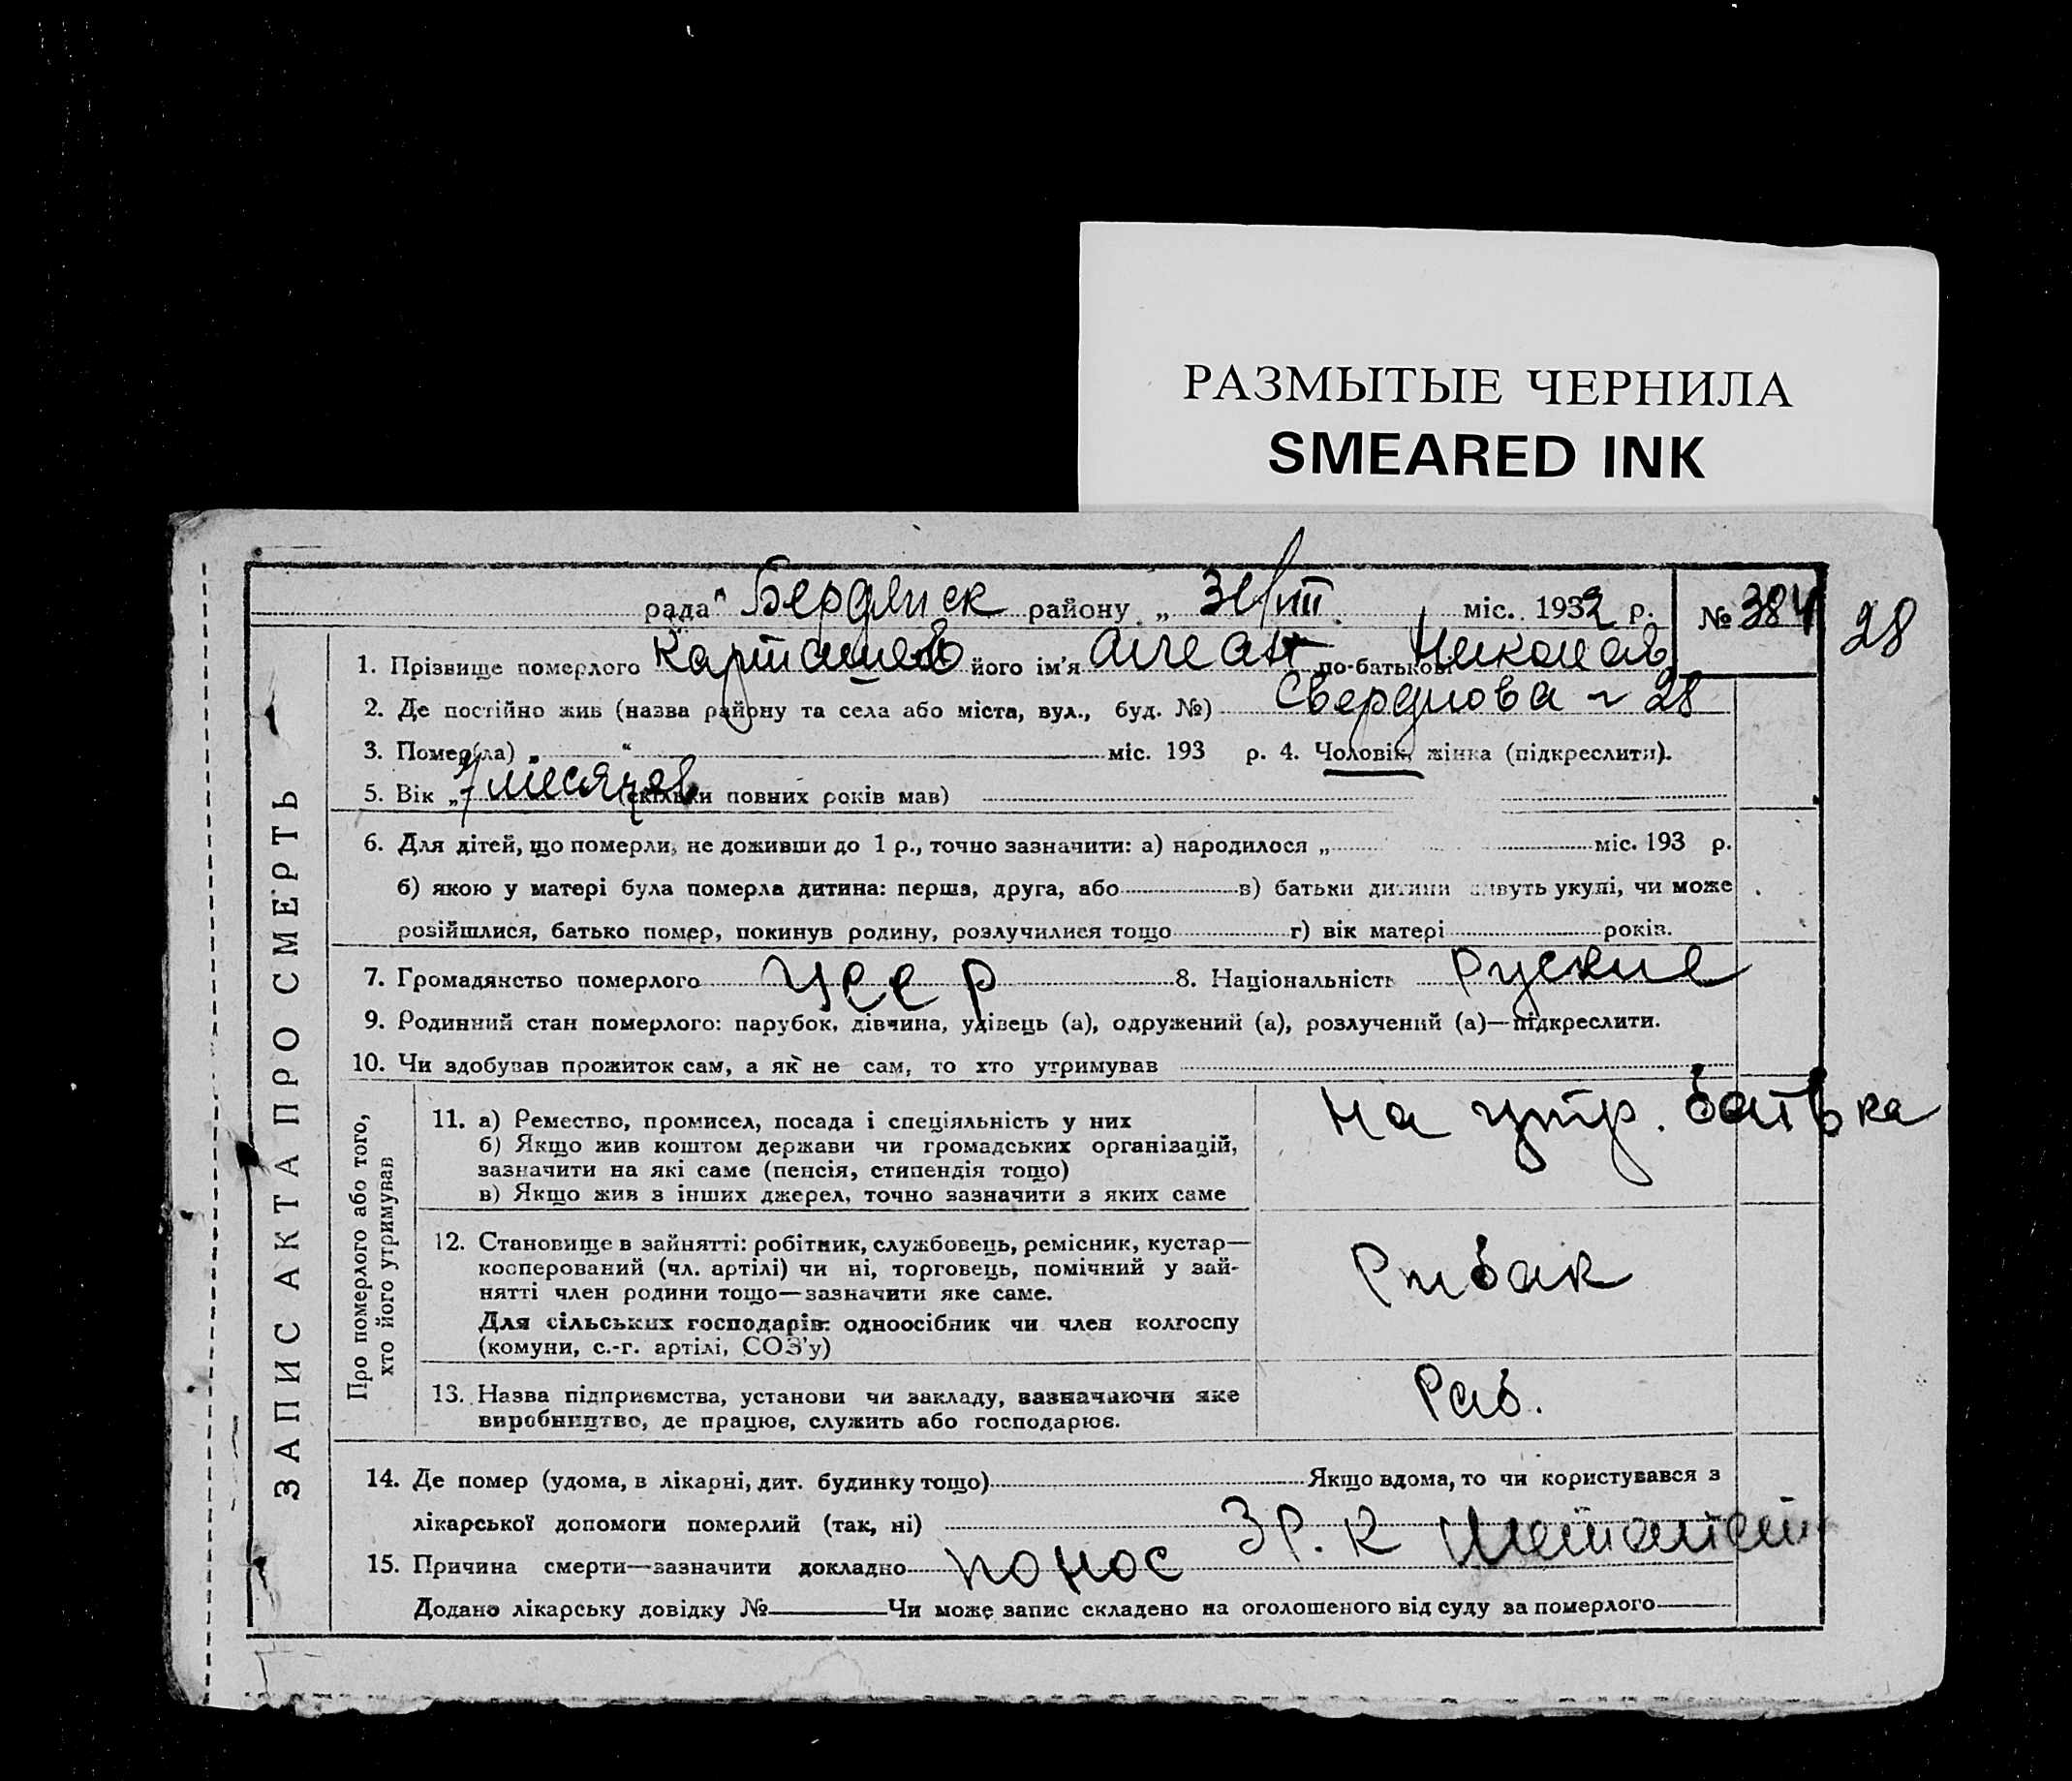 РАЗМЫТЫЕ ЧЕРНИЛА
SMEARED INK
рада Бердянск району „ 31/VIII міс. 1932 р. № 384 28
1. Прізвище померлого Карташев його ім'я по-батькові Николаев
2. Де постійно жив (назва району та села або міста, вул., буд. №) Свердлова 28
3. Помер(ла) „ “ міс. 193 р. 4. Чоловік, жінка (підкреслити).
5. Вік „ 7 месяцев (скільки повних років мав)
6. Для дітей, що померли, не доживши до 1 р., точно зазначити: а) народилося „ міс. 193 р.
б) якою у матері була померла дитина: перша, друга, або в) батьки дитини живуть укупі, чи може
розійшлися, батько помер, покинув родину, розлучилися тощо г) вік матері років.
7. Громадянство померлого УССР 8. Національність Руские
9. Родинний стан померлого: парубок, дівчина, удівець (а), одружений (а), розлучений (а)—підкреслити.
10. Чи здобував прожиток сам, а як не сам, то хто утримував
ЗАПИС АКТА ПРО СМЕРТЬ
Про померлого або того,
хто його утримував
11. а) Ремество, промисел, посада і спеціяльність у них
б) Якщо жив коштом держави чи громадських організацій,
зазначити на які саме (пенсія, стипендія тощо)
в) Якщо жив з інших джерел, точно зазначити з яких саме
на утр. батька
12. Становище в зайнятті: робітник, службовець, ремісник, кустар—
косперований (чл. артілі) чи ні, торговець, помічний у зай-
нятті член родини тощо—зазначити яке саме.
Для сільських господарів: одноосібник чи член колгоспу
(комуни, с.-г. артілі, СОЗ'у)
Рибак
13. Назва підприємства, установи чи закладу, зазначаючи яке
виробництво, де працює, служить або господарює.
Раб.
14. Де помер (удома, в лікарні, дит. будинку тощо) Якщо вдома, то чи користувався з
лікарської допомоги померлий (так, ні)
15. Причина смерти—зазначити докладно понос
Додано лікарську довідку № Чи може запис складено на оголошеного від суду за померлого